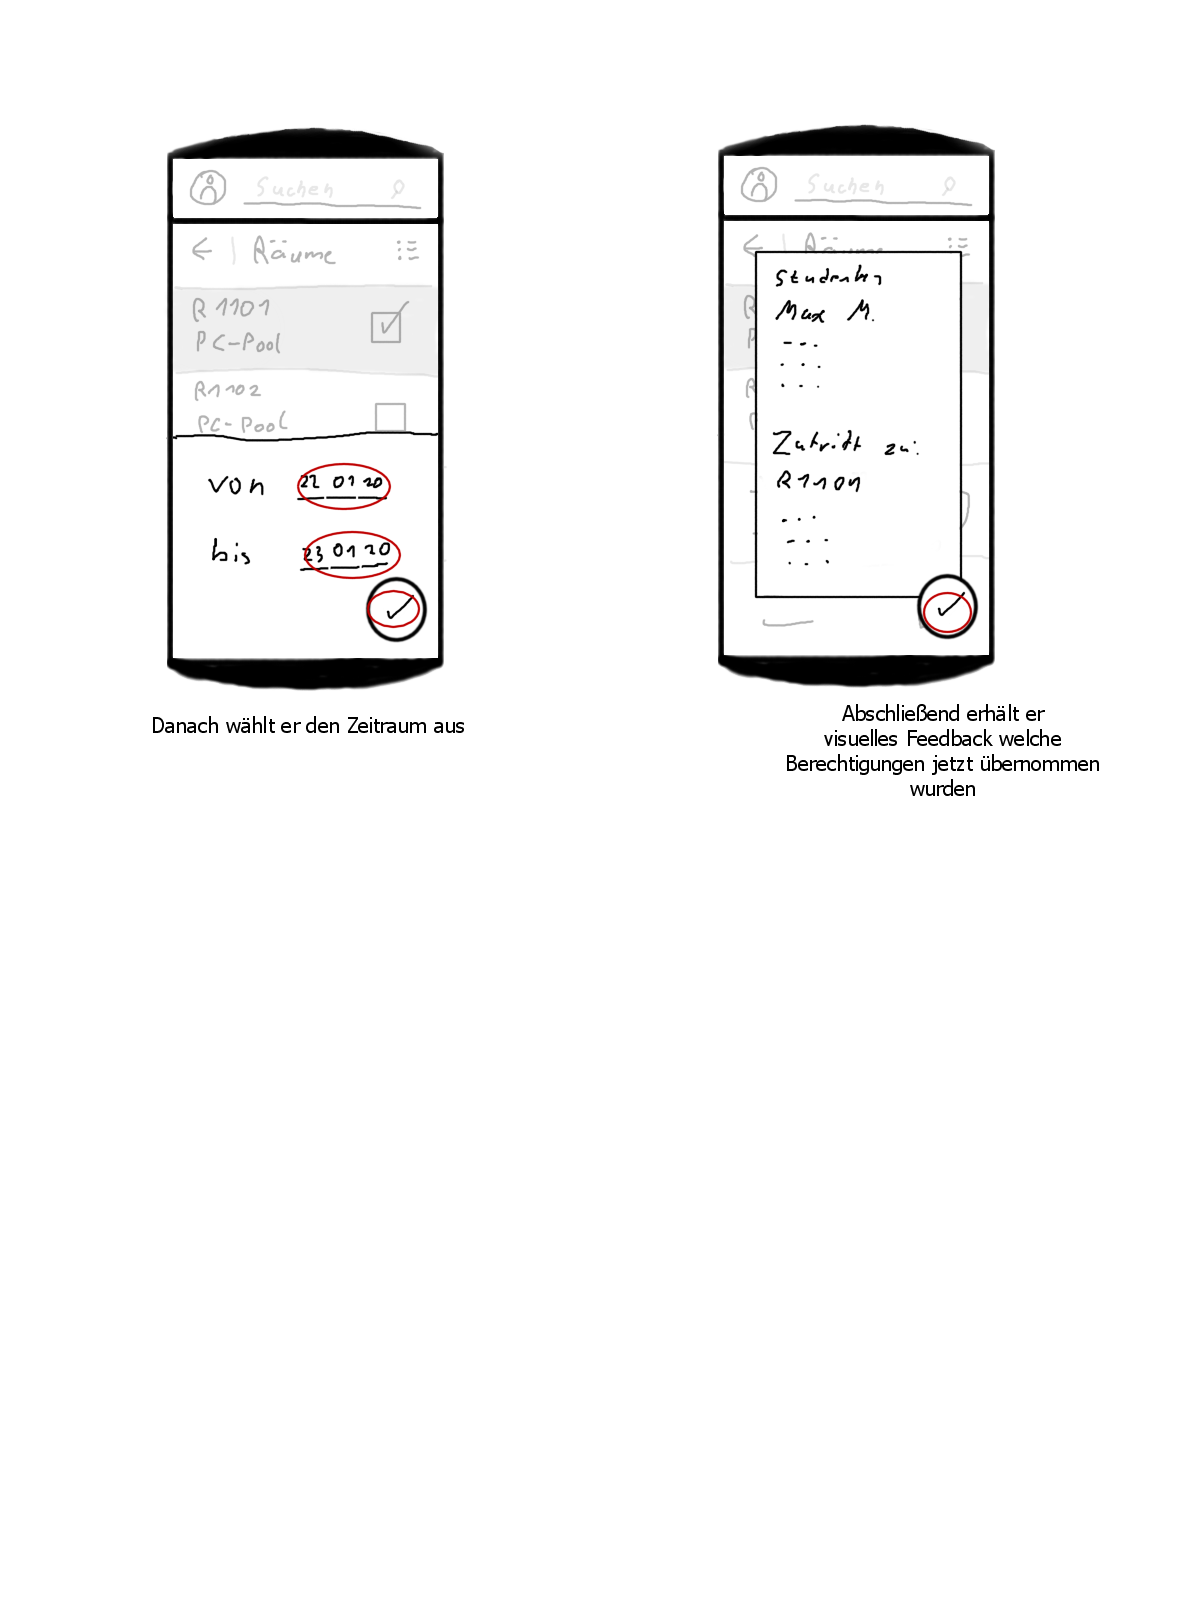 Suchen
Räume
R 1101
PC-Pool
R1102
PC-Pool
von 22 01 20
bis 23 01 20
Danach wählt er den Zeitraum aus
Suchen
Räume
R
P
R
P
Studenten
Max M.
Zutritt zu:
R1101
Abschließend erhält er
visuelles Feedback welche
Berechtigungen jetzt übernommen
wurden